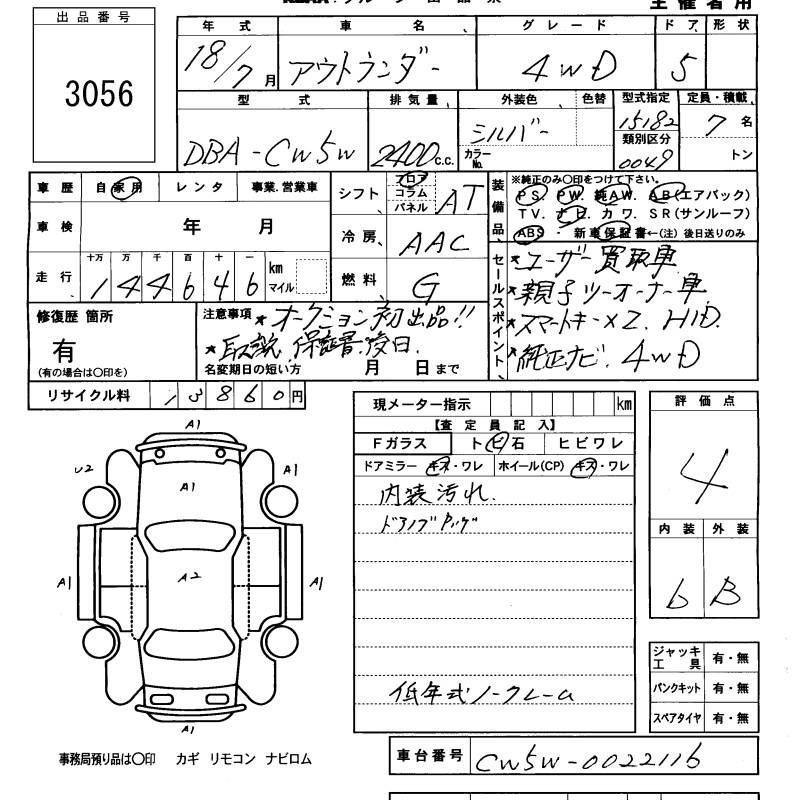 主催者用
出品番号
3056
年式 車名 グレード ドア 形状
18/7月 アウトランダー 4WD 5
型式 排気量 外装色 色替 型式指定 定員・積載
DBA-CW5W 2400c.c. シルバー カラーNo. 15182 類別区分 0049 7名 トン
車歴 自家用 レンタ 事業.営業車
車検 年 月
走行 十万 万 千 百 十 一
144646 km マイル
シフト フロア コラム パネル AT
冷房 AAC
燃料 G
装備品 ※純正のみ〇印をつけて下さい。
PS. PW. 純AW. AB(エアバック)
TV. ナビ. カワ. SR(サンルーフ)
ABS ・ 新車保証書←(注) 後日送りのみ
セールスポイント
★ユーザー買取車
★親子ツーオーナー車
★スマートキーX2. HID.
★純正ナビ. 4WD
修復歴 箇所
有
(有の場合は〇印を)
注意事項 ★オークション初出品!!
★取説、保証書後日.
名変期日の短い方 月 日まで
リサイクル料 13860円
現メーター指示 km
【査定員記入】
Fガラス トビ石 ヒビワレ
ドアミラー キズ・ワレ ホイール(CP) キズ・ワレ
内装汚れ.
低年式ノークレーム
評価点
4
内装 外装
b B
ジャッキ工具 有・無
パンクキット 有・無
スペアタイヤ 有・無
A1
U2
A1
A1
A1
A2
A1
A1
事務局預り品は〇印 カギ リモコン ナビロム
車台番号 CW5W-0022116